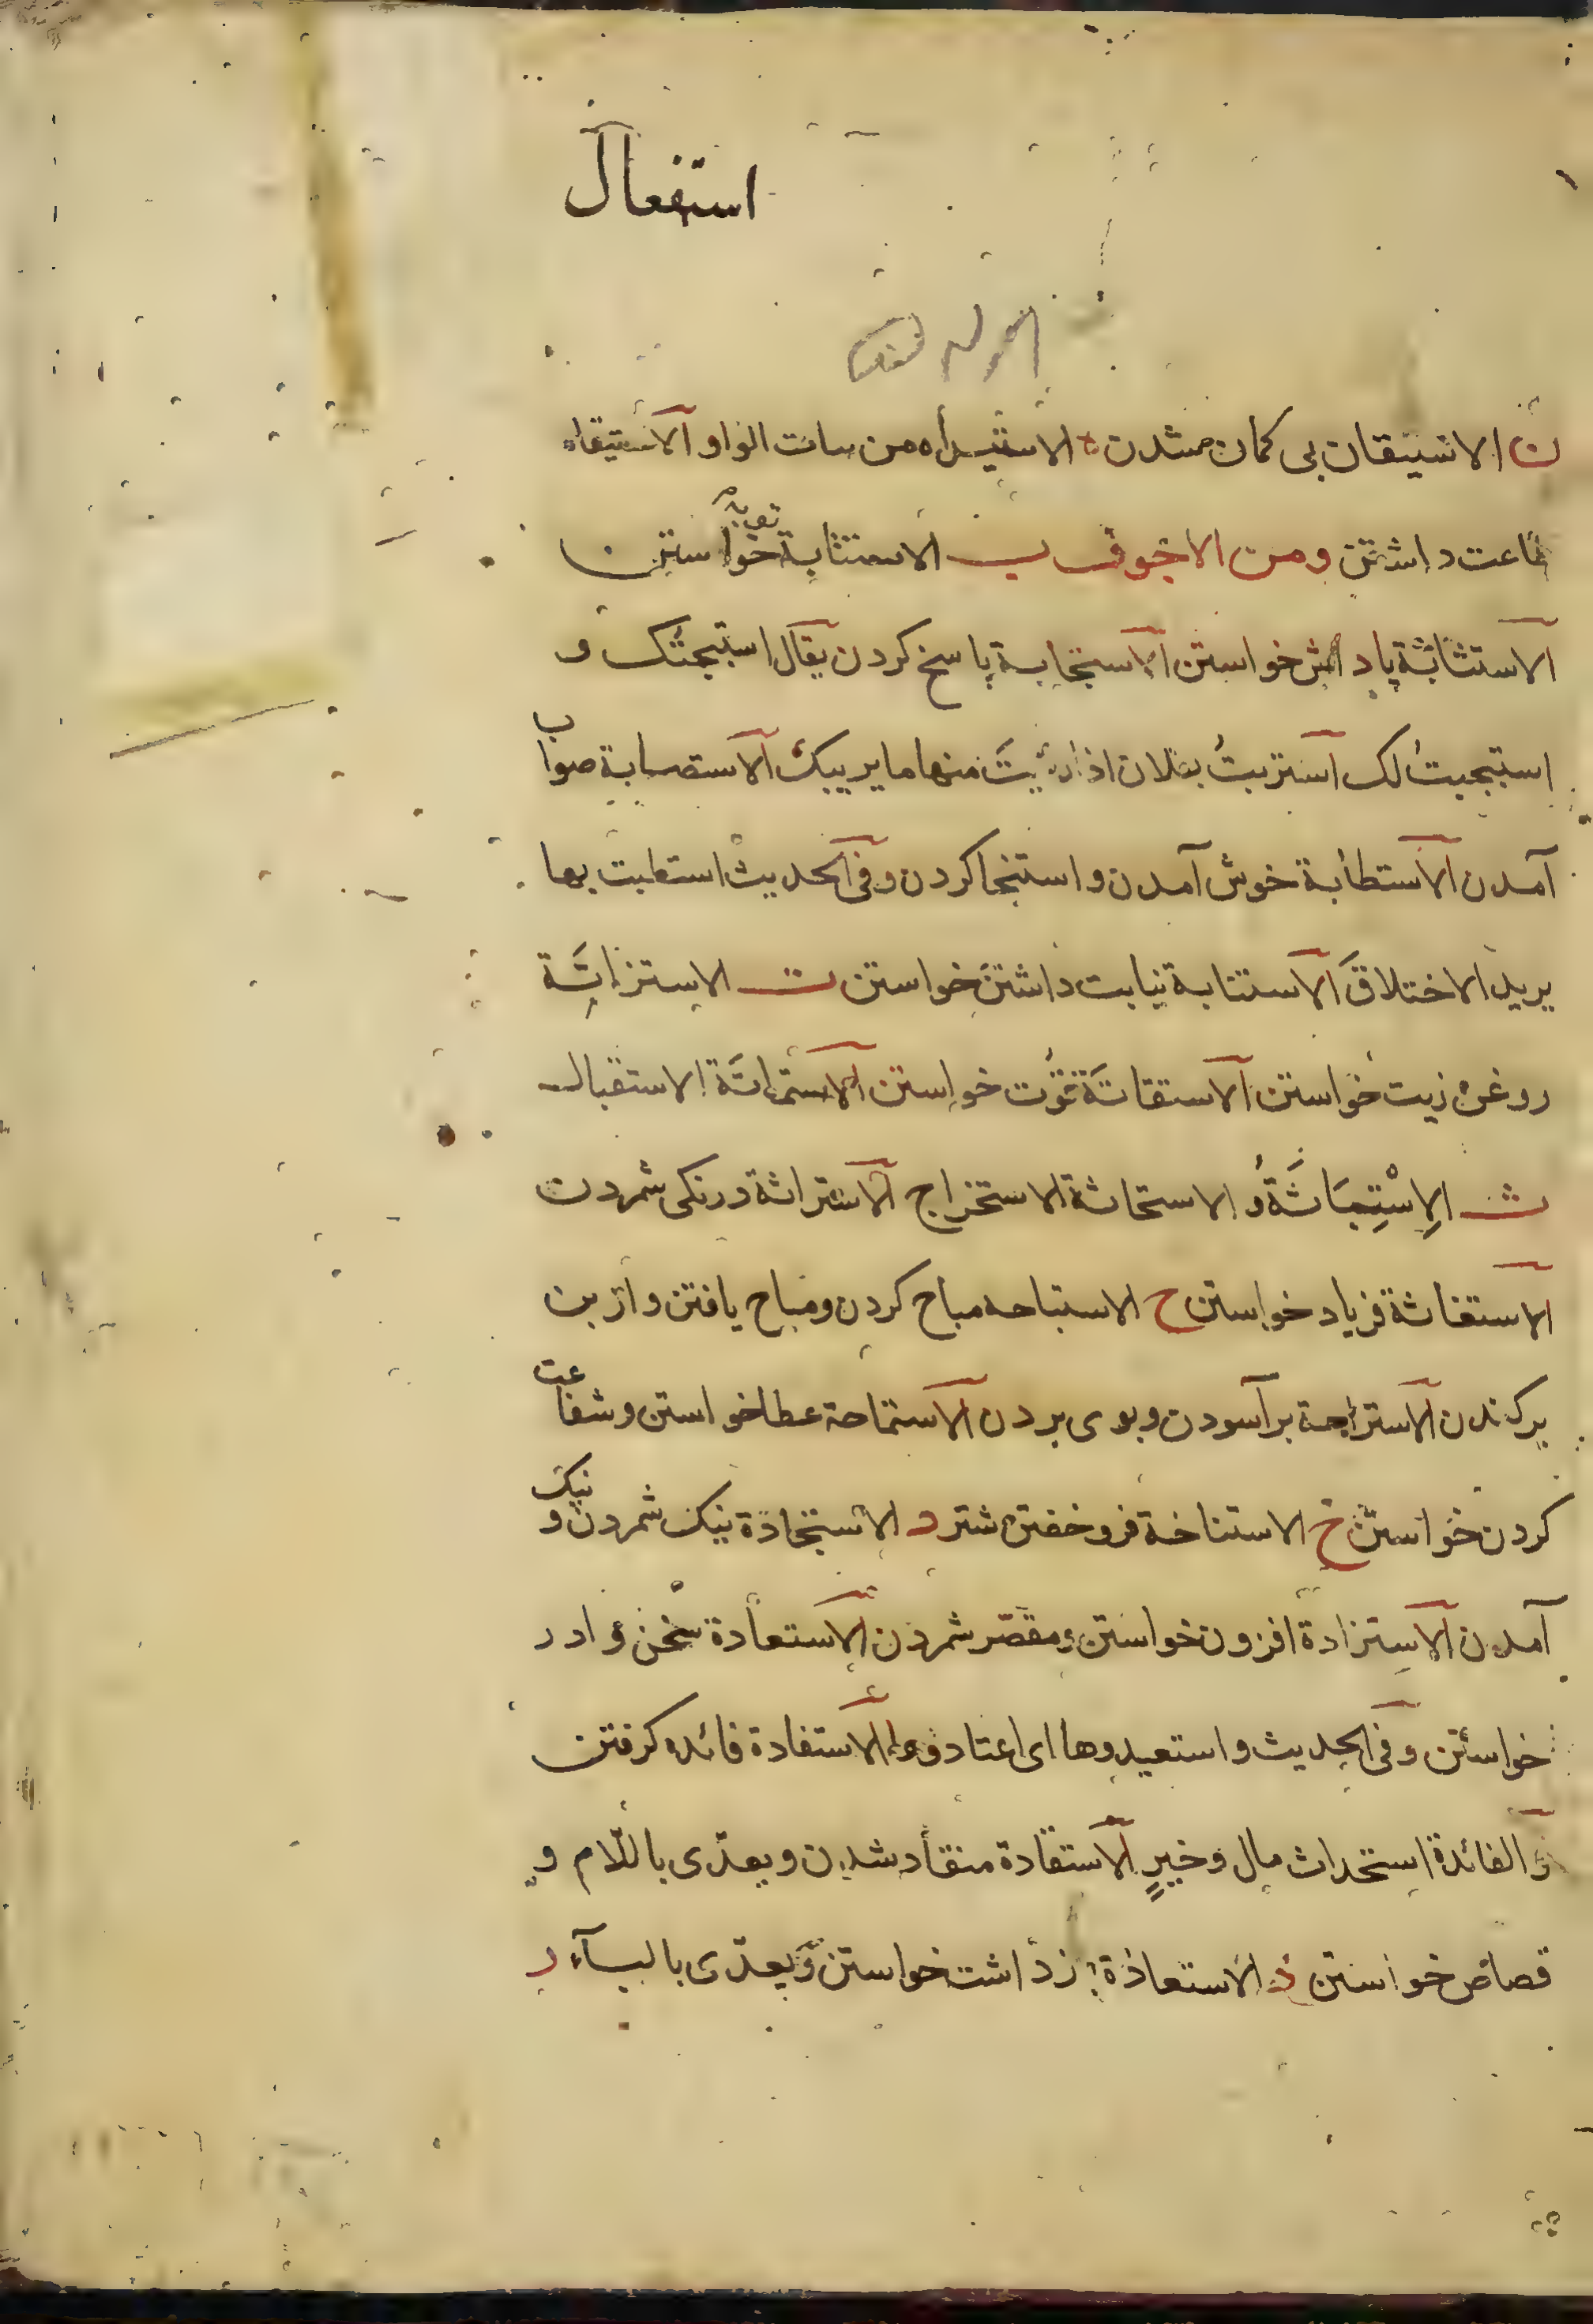 استفعال
ن الاستیقان بی کمان شدن ه الاستیداه من سات الواو الاستیقاه
طاعت داشتن ومن الاجوف ب الاستتابة توبه خواستن
الاستثابة پاداش خواستن الاستجابة پاسخ کردن یقال استجبتک و
استجبت لک استربتُ بفلان اذا رئیتَ منها ما یریبک الاستصابة صواب
آمدن الاستطابة خوش آمدن و استنجا کردن وفی الحدیث استطبت بها
یرید الاختلاق الاستنابة نیابت داشتن خواستن ت الاستزاتة
روغن زیت خواستن الاستقاتة قوت خواستن الاستماتة الاستقبال
ث الاِسْتِبَاثَةُ و الاستحاثة الاستخراج الاستراثة درنکی شمردن
الاستغاثة فریاد خواستن ح الاستباحه مباح کردن ومباح یافتن واز بن
برکندن الاستراحة برآسودن وبوی بردن الاستماحة عطا خواستن وشفاعت
کردن خواستن خ الاستناخة فروخفتن شتر د الاستجادة نیک شمردن و نیک
آمدن الاستزادة افزون خواستن ومقصّر شمردن الاستعادة سخن وادر
خواستن وفی الحدیث واستعیدوها ای اعتادوها الاستفادة فائده کرفتن
والفائدة استحداث مال وخیرٍ الاستقادة منقاد شدن ویعدّی باللّام و
قصاص خواستن ذ الاستعاذة بازداشت خواستن ویعدّی بالبآء ر